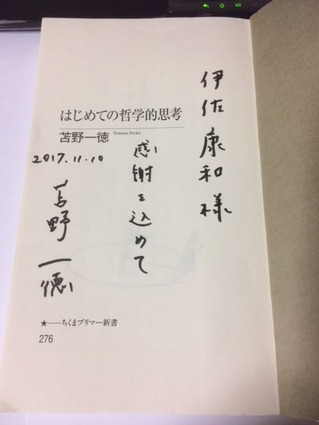 伊佐康和様
感謝を込めて
はじめての哲学的思考
苫野一徳 Tomano Ittoku
2017.11.10
苫野一徳
★――ちくまプリマー新書
276